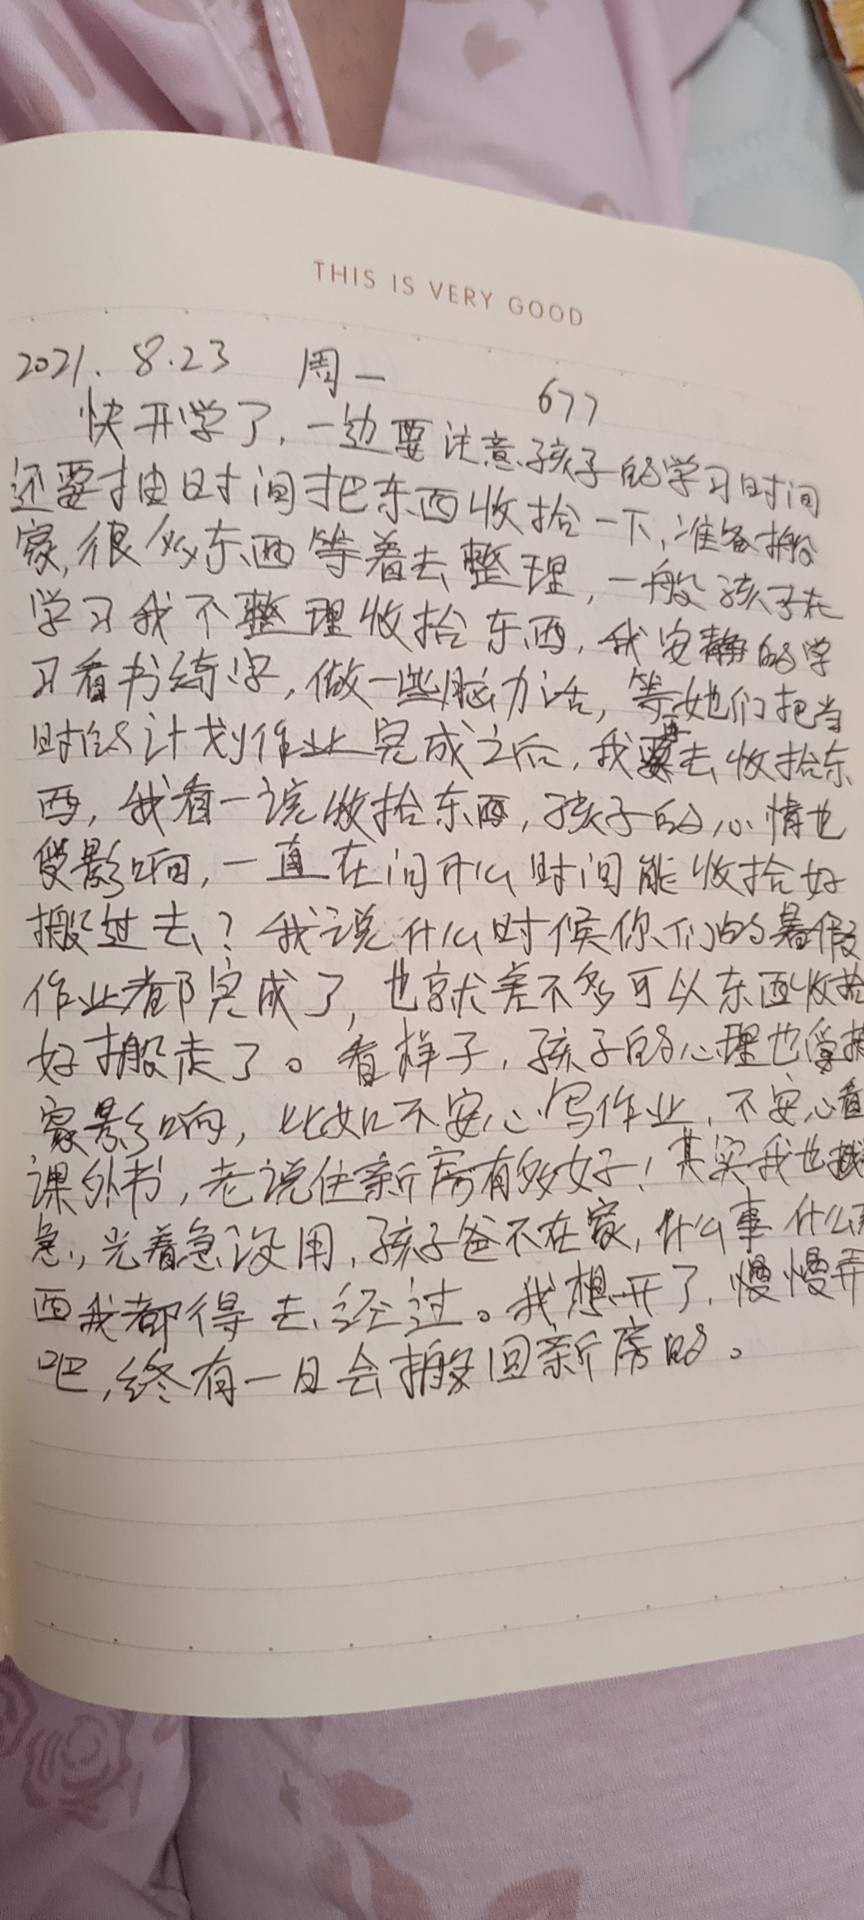 THIS IS VERY GOOD
2021. 8.23 周一 677
快开学了,一边要注意孩子的学习时间
还要抽时间把东西收拾一下,准备搬
家,很多东西等着去整理,一般孩子在
学习我不整理收拾东西,我安静的学
习看书练字,做一些脑力活,等她们把当
时的计划作业完成之后,我再去收拾东
西,我看一说收拾东西,孩子的心情也
受影响,一直在问什么时间能收拾好
搬过去?我说什么时候你们的暑假
作业都完成了,也就差不多可以东西收拾
好搬走了。看样子,孩子的心理也受搬
家影响,比如不安心写作业,不安心看
课外书,老说住新房有多好!其实我也
急,光着急没用,孩子爸不在家,什么事什么东
西我都得去经过。我想开了,慢慢弄
吧,终有一日会搬回新房的。